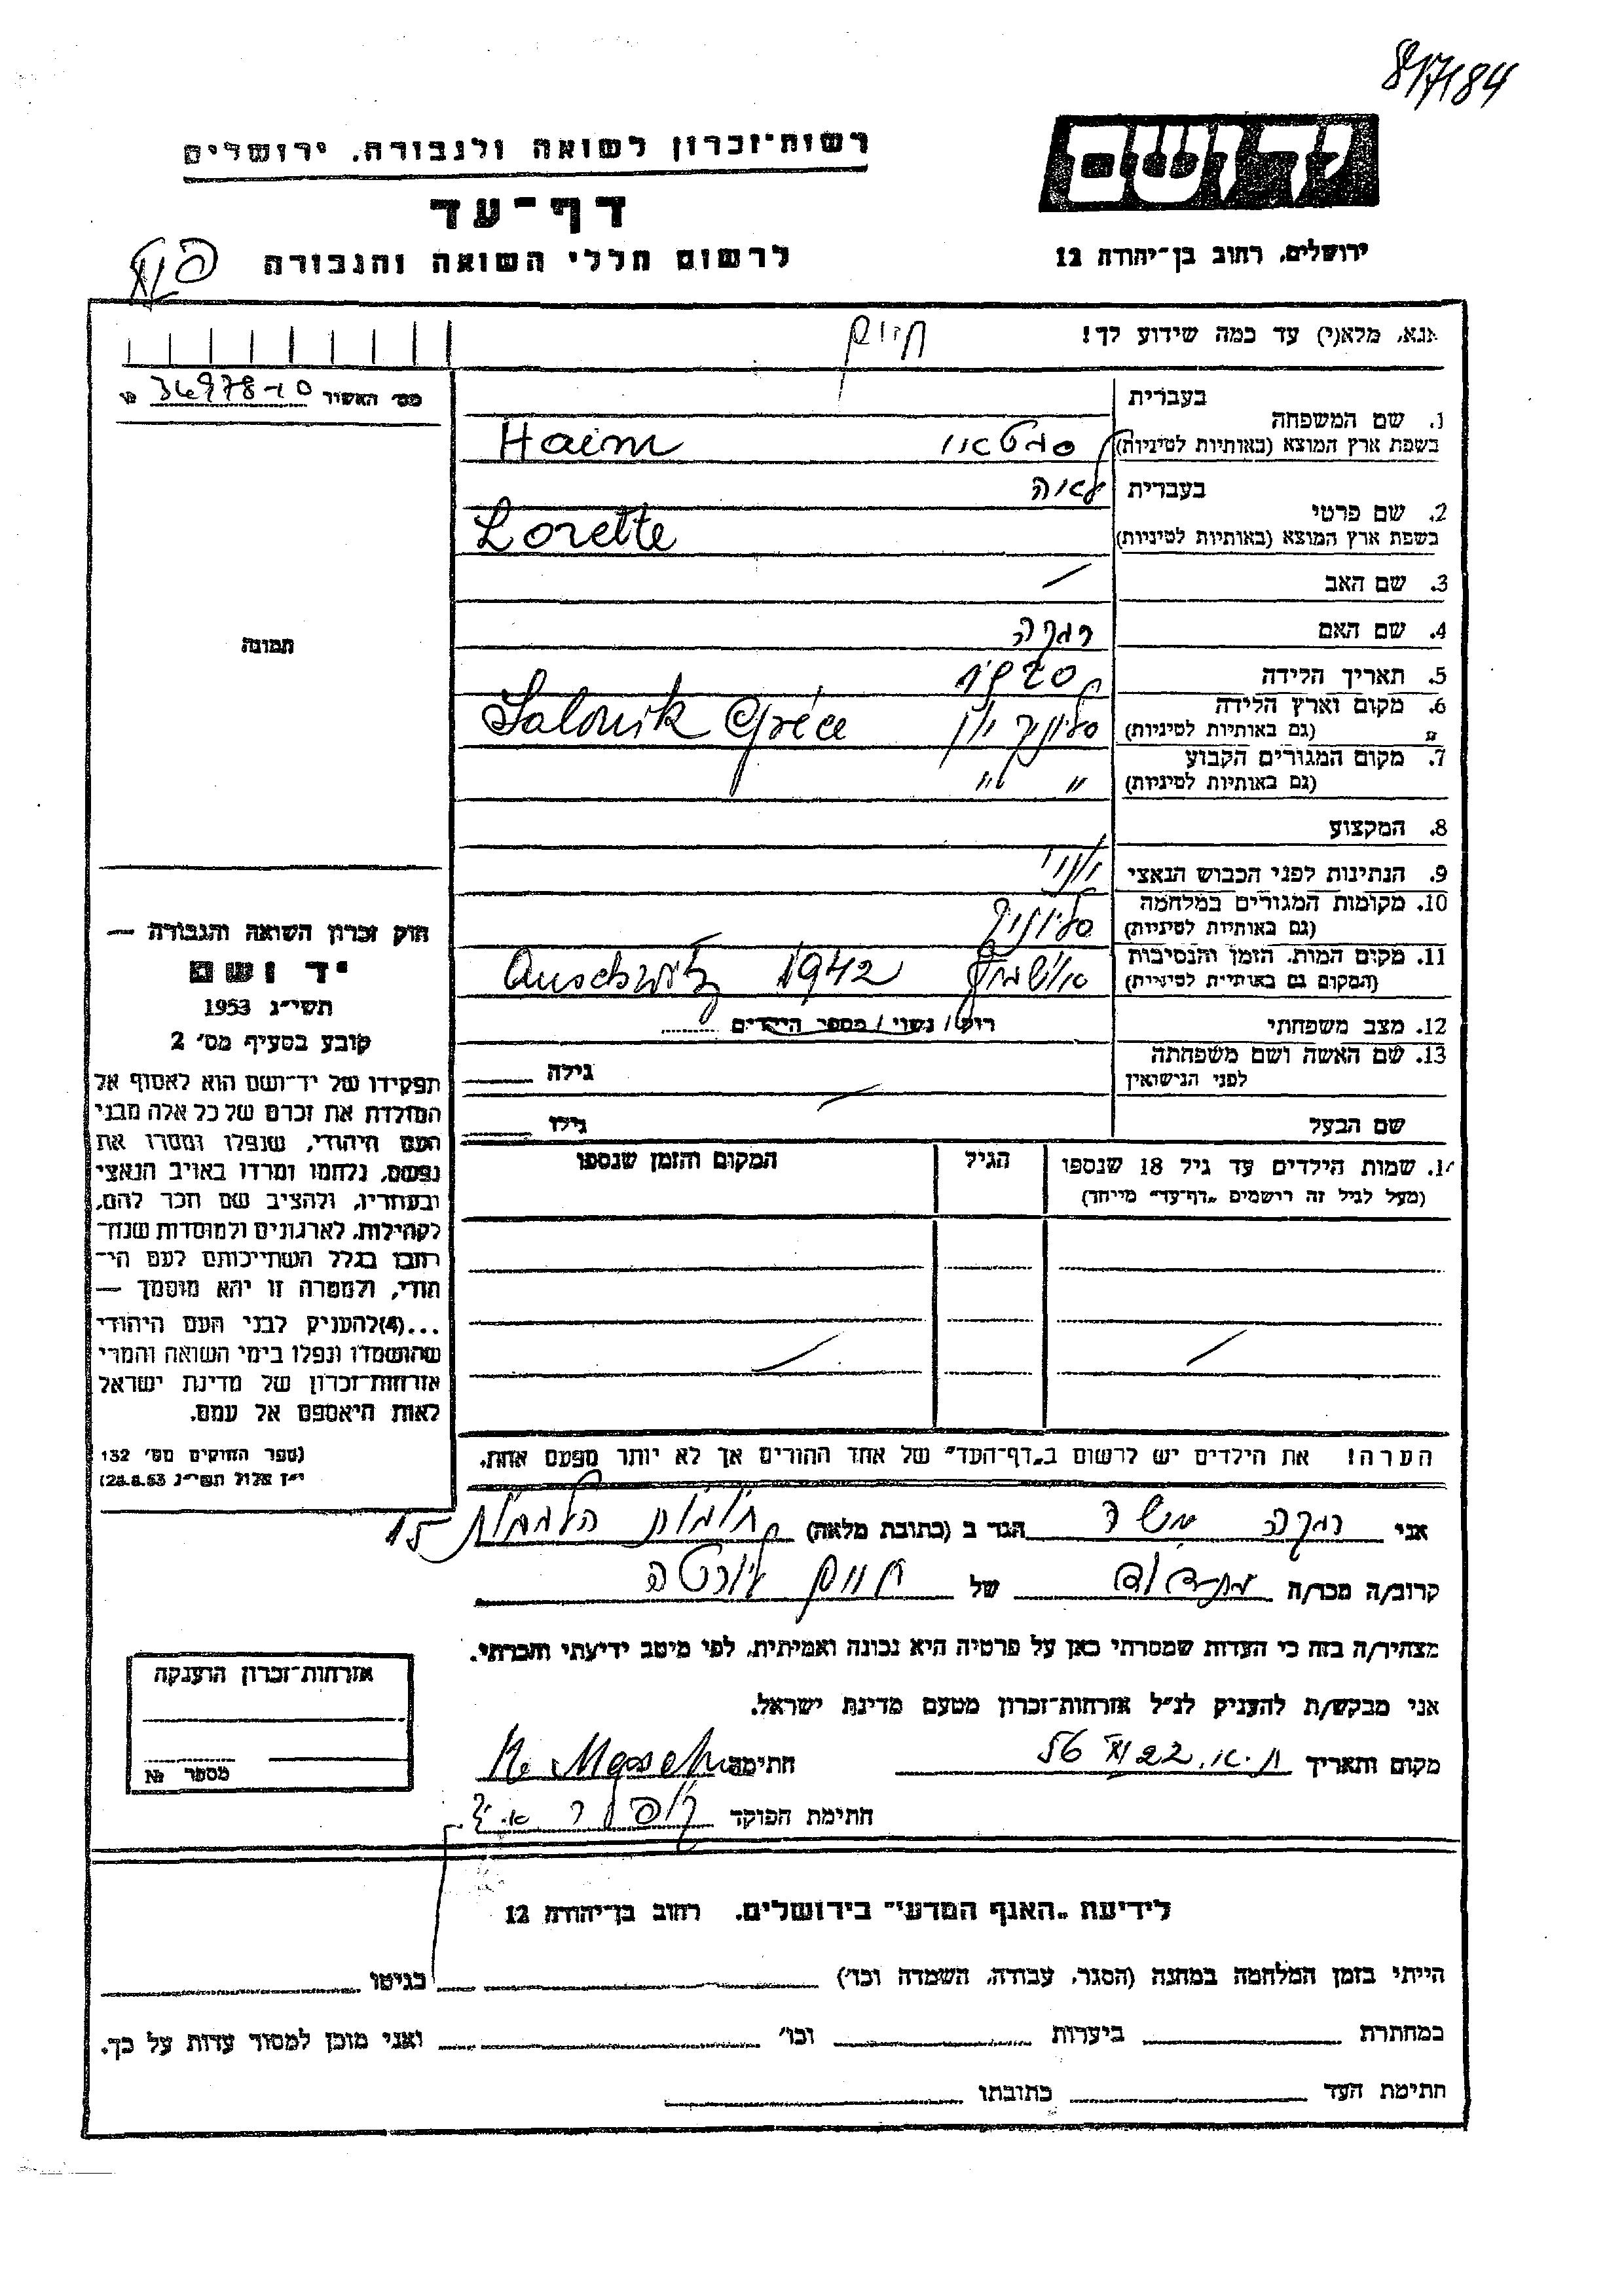 8/7/84
יד ושם
רשות־זכרון לשואה ולגבורה, ירושלים
דף־עד
ירושלים, רחוב בן־יהודה 12
לרשום חללי השואה והגבורה
אנא, מלא(י) עד כמה שידוע לך!
חיים
מס׳ האשיר
בעברית
1. שם המשפחה
בשפת ארץ המוצא (באותיות לטיניות)
Haim
בעברית
לאורה
2. שם פרטי
בשפת ארץ המוצא (באותיות לטיניות)
Lorette
3. שם האב
4. שם האם רבקה
5. תאריך הלידה 1920
6. מקום וארץ הלידה
(גם באותיות לטיניות)
סלוניקי יון Salonik Gréce
7. מקום המגורים הקבוע
(גם באותיות לטיניות)
״ ״
8. המקצוע
9. הנתינות לפני הכבוש הנאצי יוני
10. מקומות המגורים במלחמה
(גם באותיות לטיניות)
סלוניקי
11. מקום המות, הזמן והנסיבות
(המקום גם באותיות לטיניות)
אושוויץ 1942 Auschwitz
12. מצב משפחתי רווק / נשוי / מספר הילדים
13. שם האשה ושם משפחתה
לפני הנישואין
גילה
שם הבעל גילו
14. שמות הילדים עד גיל 18 שנספו
(מעל לגיל זה רישמים „דף־עד״ מייחד)
הגיל
המקום והזמן שנספו
הערה! את הילדים יש לרשום ב„דף־העד״ של אחד ההורים אך לא יותר מפעם אחת.
תמונה
חוק זכרון השואה והגבורה —
יד ושם
תשי״ג 1953
קובע בסעיף מס׳ 2
תפקידו של יד־ושם הוא לאסוף אל
המולדת את זכרם של כל אלה מבני
העם היהודי, שנפלו ומסרו את
נפשם, נלחמו ומרדו באויב הנאצי
ובעוזריו, ולהציב שם וזכר להם,
לקהילות, לארגונים ולמוסדות שנח־
רבו בגלל השתייכותם לעם הי־
הודי, ולמטרה זו יהא מוסמך —
...(4)להעניק לבני העם היהודי
שהושמדו ונפלו בימי השואה והמרי
אזרחות־זכרון של מדינת ישראל
לאות היאספם אל עמם.
(ספר החוקים מס׳ 132
י״ז אלול תשי״ג 28.8.53)
אני רבקה הגר ב (כתובת מלאה) 15
קרוב/ה מכר/ה של חיים לורטה
מצהיר/ה בזה כי העדות שמסרתי כאן על פרטיה היא נכונה ואמיתית, לפי מיטב ידיעתי והכרתי.
אני מבקש/ת להעניק לנ״ל אזרחות־זכרון מטעם מדינת ישראל.
מקום ותאריך ת.א. 22 XI 56 חתימה
חתימת הפוקד
אזרחות־זכרון הוענקה
מספר №
לידיעת „האגף המדעי״ בירושלים, רחוב בן־יהודה 12
הייתי בזמן המלחמה במחנה (הסגר, עבודה, השמדה וכו׳) בגיטו
במחתרת ביערות וכו׳ ואני מוכן למסור עדות על כך.
חתימת העד כתובתו